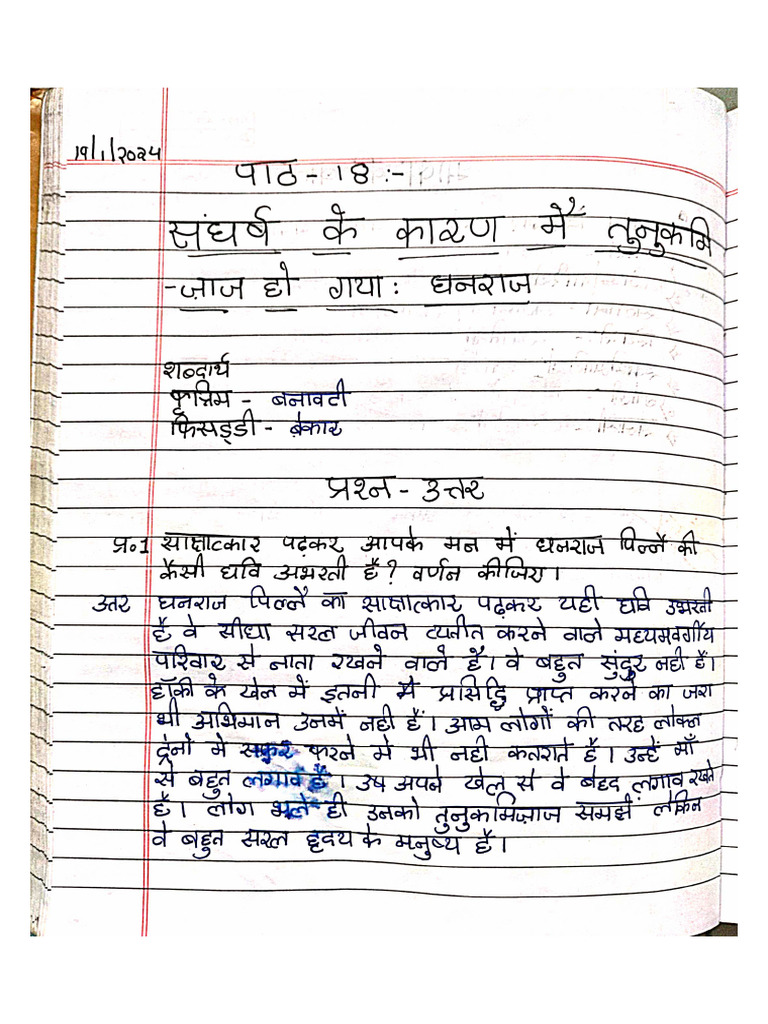 19/1/2024
पाठ - 18 :-
संघर्ष के कारण मैं तुनुकमि
-जाज हो गया: धनराज
शब्दार्थ
कृत्रिम - बनावटी
फिसड्डी - बेकार
प्रश्न - उत्तर
प्र॰1 साक्षात्कार पढ़कर आपके मन में धनराज पिल्लै की
कैसी छवि उभरती है? वर्णन कीजिए।
उत्तर धनराज पिल्लै का साक्षात्कार पढ़कर यही छवि उभरती
है वे सीधा सरल जीवन व्यतीत करने वाले मध्यमवर्गीय
परिवार से नाता रखने वाले है। वे बहुत सुंदर नही हैं।
हॉकी के खेल में इतनी मै प्रसिद्धि प्राप्त करने का जरा
भी अभिमान उनमें नही हैं। आम लोगों की तरह लोकल
ट्रेनो मे सफर करने मे भी नही कतराते है। उन्हें माँ
से बहुत लगाव है। उष अपने खेल से वे बेहद लगाव रखते
है। लोग भले ही उनको तुनुकमिज़ाज समझें लेकिन
वे बहुत सरल हृदय के मनुष्य हैं।